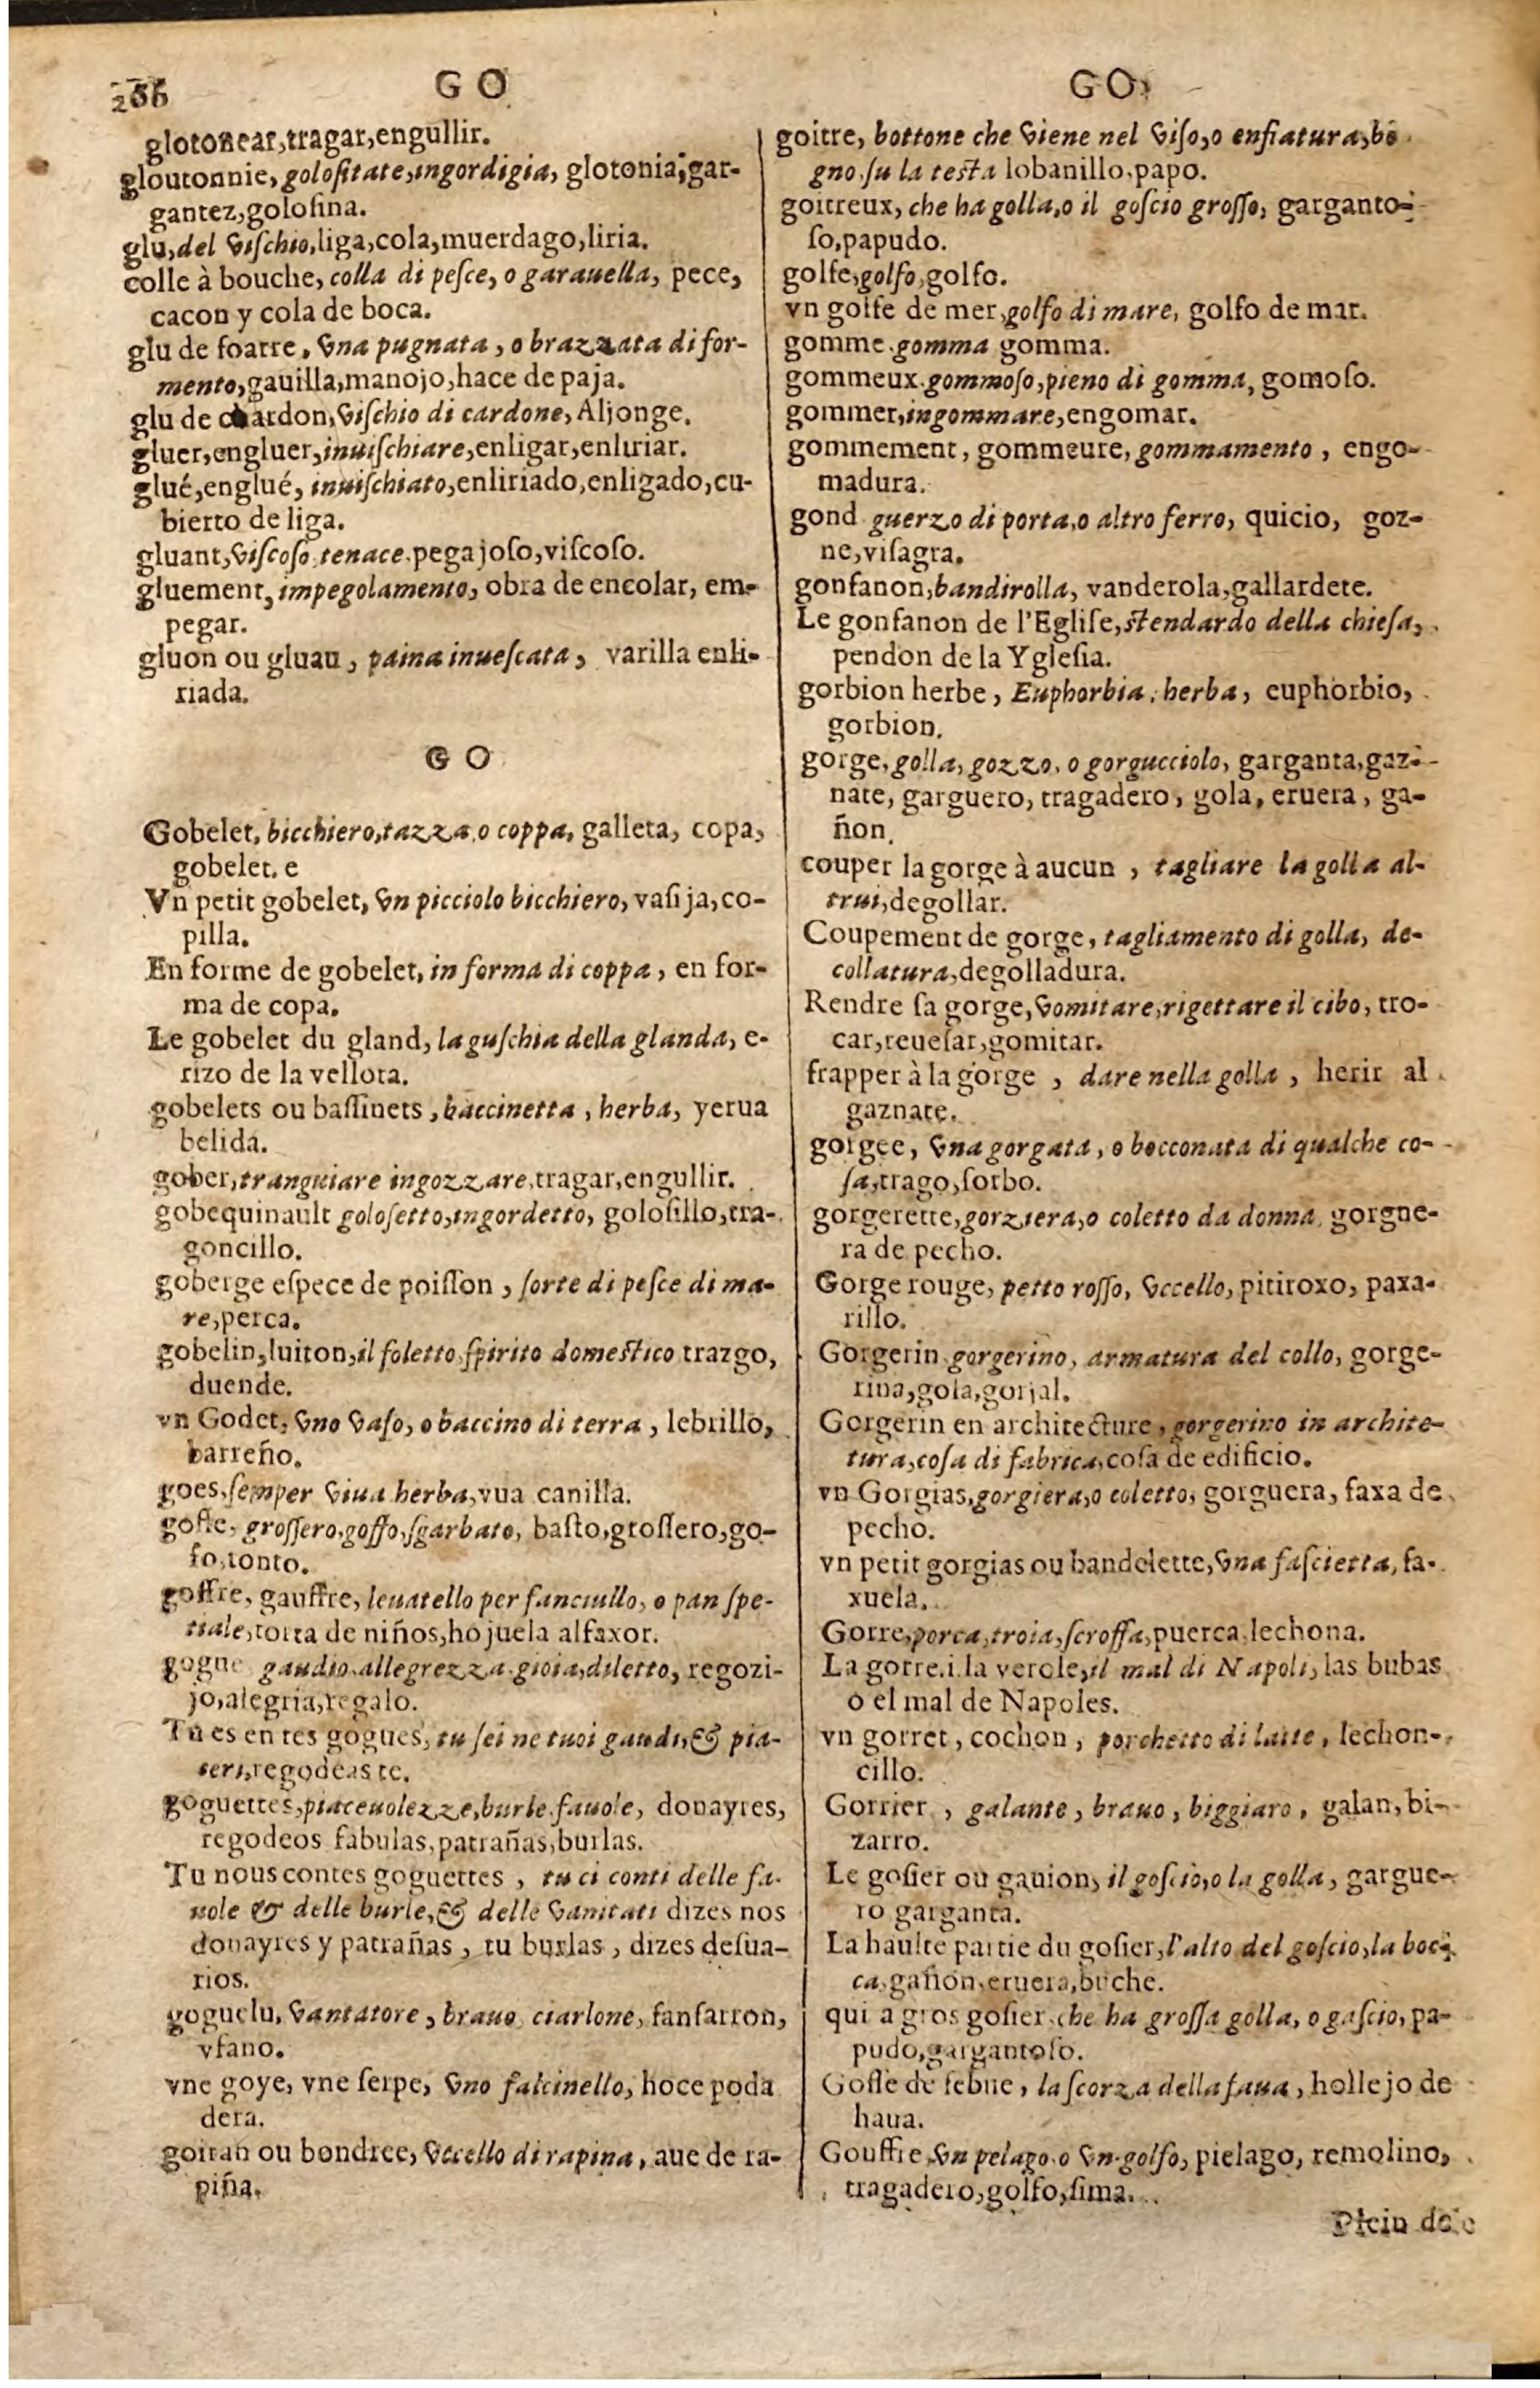 266
GO
GO
glotonear,tragar,engullir.
gloutonnie, golositate,ingordigia, glotonia, gar-
gantez,golosina.
glu, del vischio,liga,cola,muerdago,liria.
colle à bouche, colla di pesce, o garauella, pece,
cacon y cola de boca.
glu de foarre, vna pugnata, o brazzata di for-
mento,gauilla,manojo,hace de paja.
glu de chardon, vischio di cardone, Aljonge.
gluer,engluer,inuischiare,enligar,enliriar.
glué,englué, inuischiato,enliriado,enligado,cu-
bierto de liga.
gluant,viscoso,tenace.pegajoso,viscoso.
gluement, impegolamento, obra de encolar, em-
pegar.
gluon ou gluau, paina inuescata, varilla enli-
riada.
GO
Gobelet, bicchiero,tazza,o coppa, galleta, copa,
gobelet. e
Vn petit gobelet, vn picciolo bicchiero, vasija, co-
pilla.
En forme de gobelet, in forma di coppa, en for-
ma de copa.
Le gobelet du gland, la guschia della glanda, e-
rizo de la vellota.
gobelets ou bassinets, baccinetta, herba, yerua
belida.
gober,tranguiare ingozzare,tragar,engullir.
gobequinault golosetto,ingordetto, golosillo,tra-
goncillo.
goberge espece de poisson, sorte di pesce di ma-
re,perca.
gobelin,luiton,il foletto,spirito domestico trazgo,
duende.
vn Godet, vno vaso, o baccino di terra, lebrillo,
barreño.
goes,semper viua herba,vua canilla.
goffe, grossero,goffo,sgarbato, basto,grossero,go-
fo,tonto.
goffre, gauffre, leuatello per fanciullo, o pan spe-
tiale,torta de niños,hojuela alfaxor.
gogue gaudio,allegrezza,gioia,diletto, regozi-
jo,alegria,regalo.
Tu es en tes gogues, tu sei ne tuoi gaudi,& pia-
seri,regodeas te.
goguettes,piaceuolezze,burle,fauole, donayres,
regodeos fabulas,patrañas,burlas.
Tu nous contes goguettes, tu ci conti delle fa-
uole & delle burle,& delle vanitati dizes nos
donayres y patrañas, tu burlas, dizes desua-
rios.
goguelu, vantatore, brauo, ciarlone, fanfarron,
vfano.
vne goye, vne serpe, vno falcinello, hoce poda
dera.
goiran ou bondree, vccello di rapina, aue de ra-
piña.
goitre, bottone che viene nel viso,o enfiatura,bo
gno su la testa lobanillo,papo.
goitreux, che ha golla,o il goscio grosso, garganto-
so,papudo.
golfe,golfo,golfo.
vn golfe de mer,golfo di mare, golfo de mar.
gomme.gomma gomma.
gommeux.gommoso,pieno di gomma, gomoso.
gommer,ingommare,engomar.
gommement, gommeure, gommamento, engo-
madura.
gond guerzo di porta,o altro ferro, quicio, goz-
ne,visagra.
gonfanon,bandirolla, vanderola,gallardete.
Le gonfanon de l'Eglise,stendardo della chiesa,
pendon de la Yglesia.
gorbion herbe, Euphorbia, herba, euphorbio,
gorbion.
gorge, golla, gozzo, o gorgucciolo, garganta,gaz-
nate, garguero, tragadero, gola, eruera, ga-
ñon.
couper la gorge à aucun, tagliare la golla al-
trui,degollar.
Coupement de gorge, tagliamento di golla, de-
collatura,degolladura.
Rendre sa gorge,vomitare,rigettare il cibo, tro-
car,reuesar,gomitar.
frapper à la gorge, dare nella golla, herir al
gaznate.
gorgee, vna gorgata, o bocconata di qualche co-
sa,trago,sorbo.
gorgerette,gorziera,o coletto da donna, gorgue-
ra de pecho.
Gorge rouge, petto rosso, vccello, pitiroxo, paxa-
rillo.
Gorgerin gorgerino, armatura del collo, gorge-
rina,gola,gorjal.
Gorgerin en architecture, gorgerino in archite-
tura,cosa di fabrica,cosa de edificio.
vn Gorgias,gorgiera,o coletto, gorguera, faxa de
pecho.
vn petit gorgias ou bandelette,vna fascietta, fa-
xuela.
Gorre,porca,troia,scroffa,puerca,lechona.
La gorre.i.la verole,il mal di Napoli, las bubas
o el mal de Napoles.
vn gorret, cochon, porchetto di latte, lechon-
cillo.
Gorrier, galante, brauo, biggiaro, galan, bi-
zarro.
Le gosier ou gauion, il goscio,o la golla, gargue-
ro garganta.
La haulte partie du gosier,l'alto del goscio,la boc-
ca,gañon,eruera,buche.
qui a gros gosier,che ha grossa golla, o gascio, pa-
pudo,gargantoso.
Gosse de febue, la scorza della faua, hollejo de
haua.
Gouffre,vn pelago o vn golfo, pielago, remolino,
tragadero,golfo,sima.
Plein de